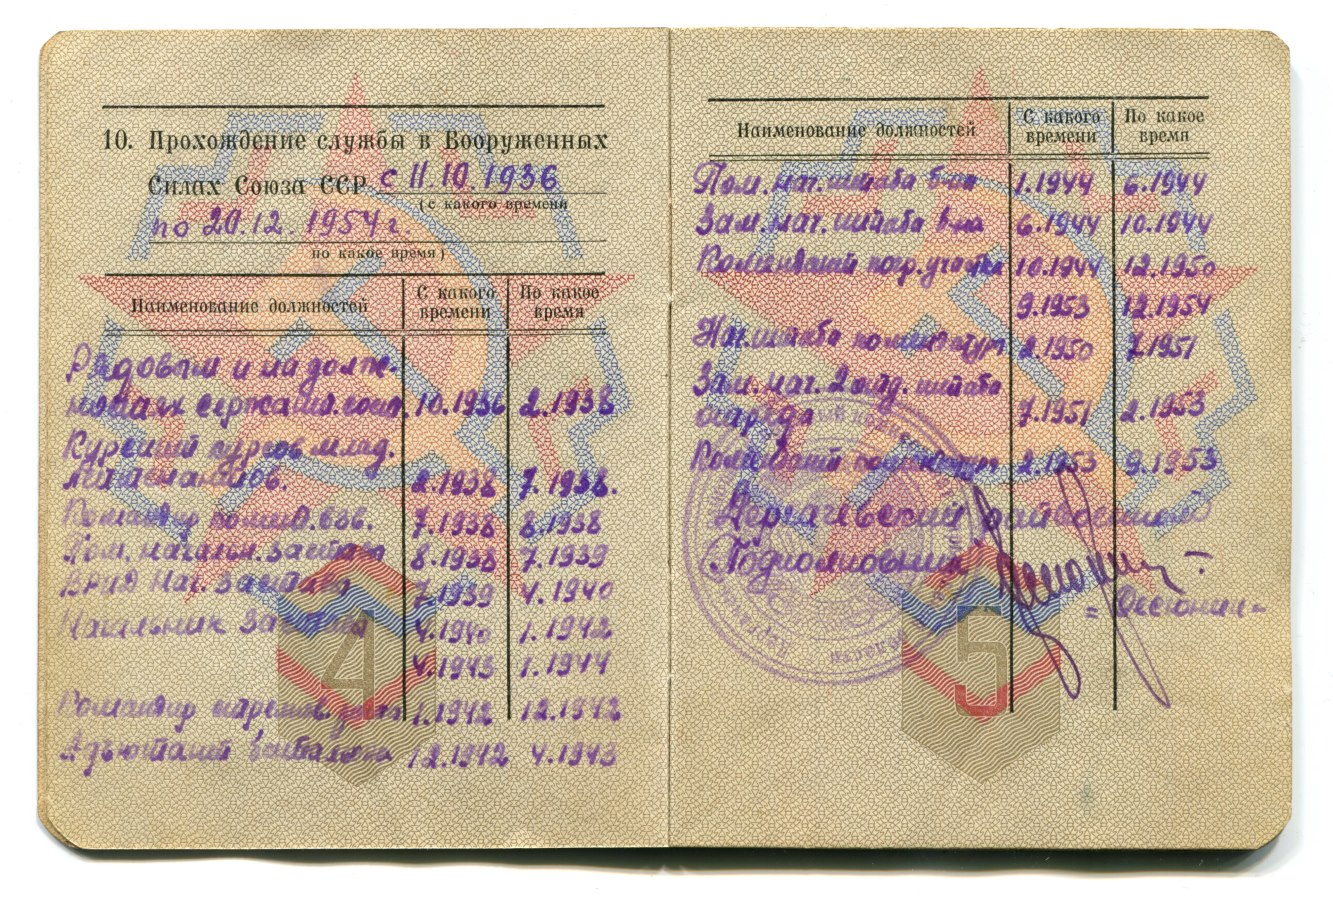 10. Прохождение службы в Вооруженных
Силах Союза ССР с 11.10.1936
(с какого времени
по 20.12.1954г.
по какое время)
Наименование должностей С какого времени По какое время
Рядовой и на долж-
ностях сержант. сост. 10.1936 2.1938
Курсант курсов млад.
лейтенантов. 2.1938 7.1938.
Командир взв. 7.1938 8.1938
Пом. начальн. заставы 8.1938 7.1939
ВРИД нач. заставы 7.1939 4.1940
Начальник заставы 4.1940 1.1942
4.1943 1.1944
Командир стрелков. роты 1.1942 12.1942
Адъютант батальона 12.1942 4.1943
4
Наименование должностей С какого времени По какое время
Пом. нач. штаба б-на 1.1944 6.1944
Зам. нач. штаба б-на 6.1944 10.1944
Комендант погр. участка 10.1944 12.1950
9.1953 12.1954
Нач. штаба комендатур 2.1950 7.1951
Зам. нач. 2 отд. штаба
отряда 7.1951 2.1953
Комендант комендатур 2.1953 9.1953
Дергачевский райвоенком
Подполковник
5